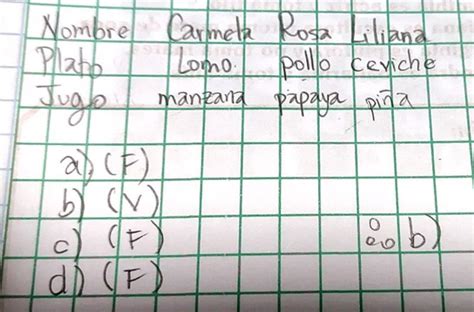 Nombre Carmela Rosa Liliana
Plato Lomo. pollo ceviche
Jugo manzana papaya piña
a) (F)
b) (V)
c) (F) ∴ b)
d) (F)